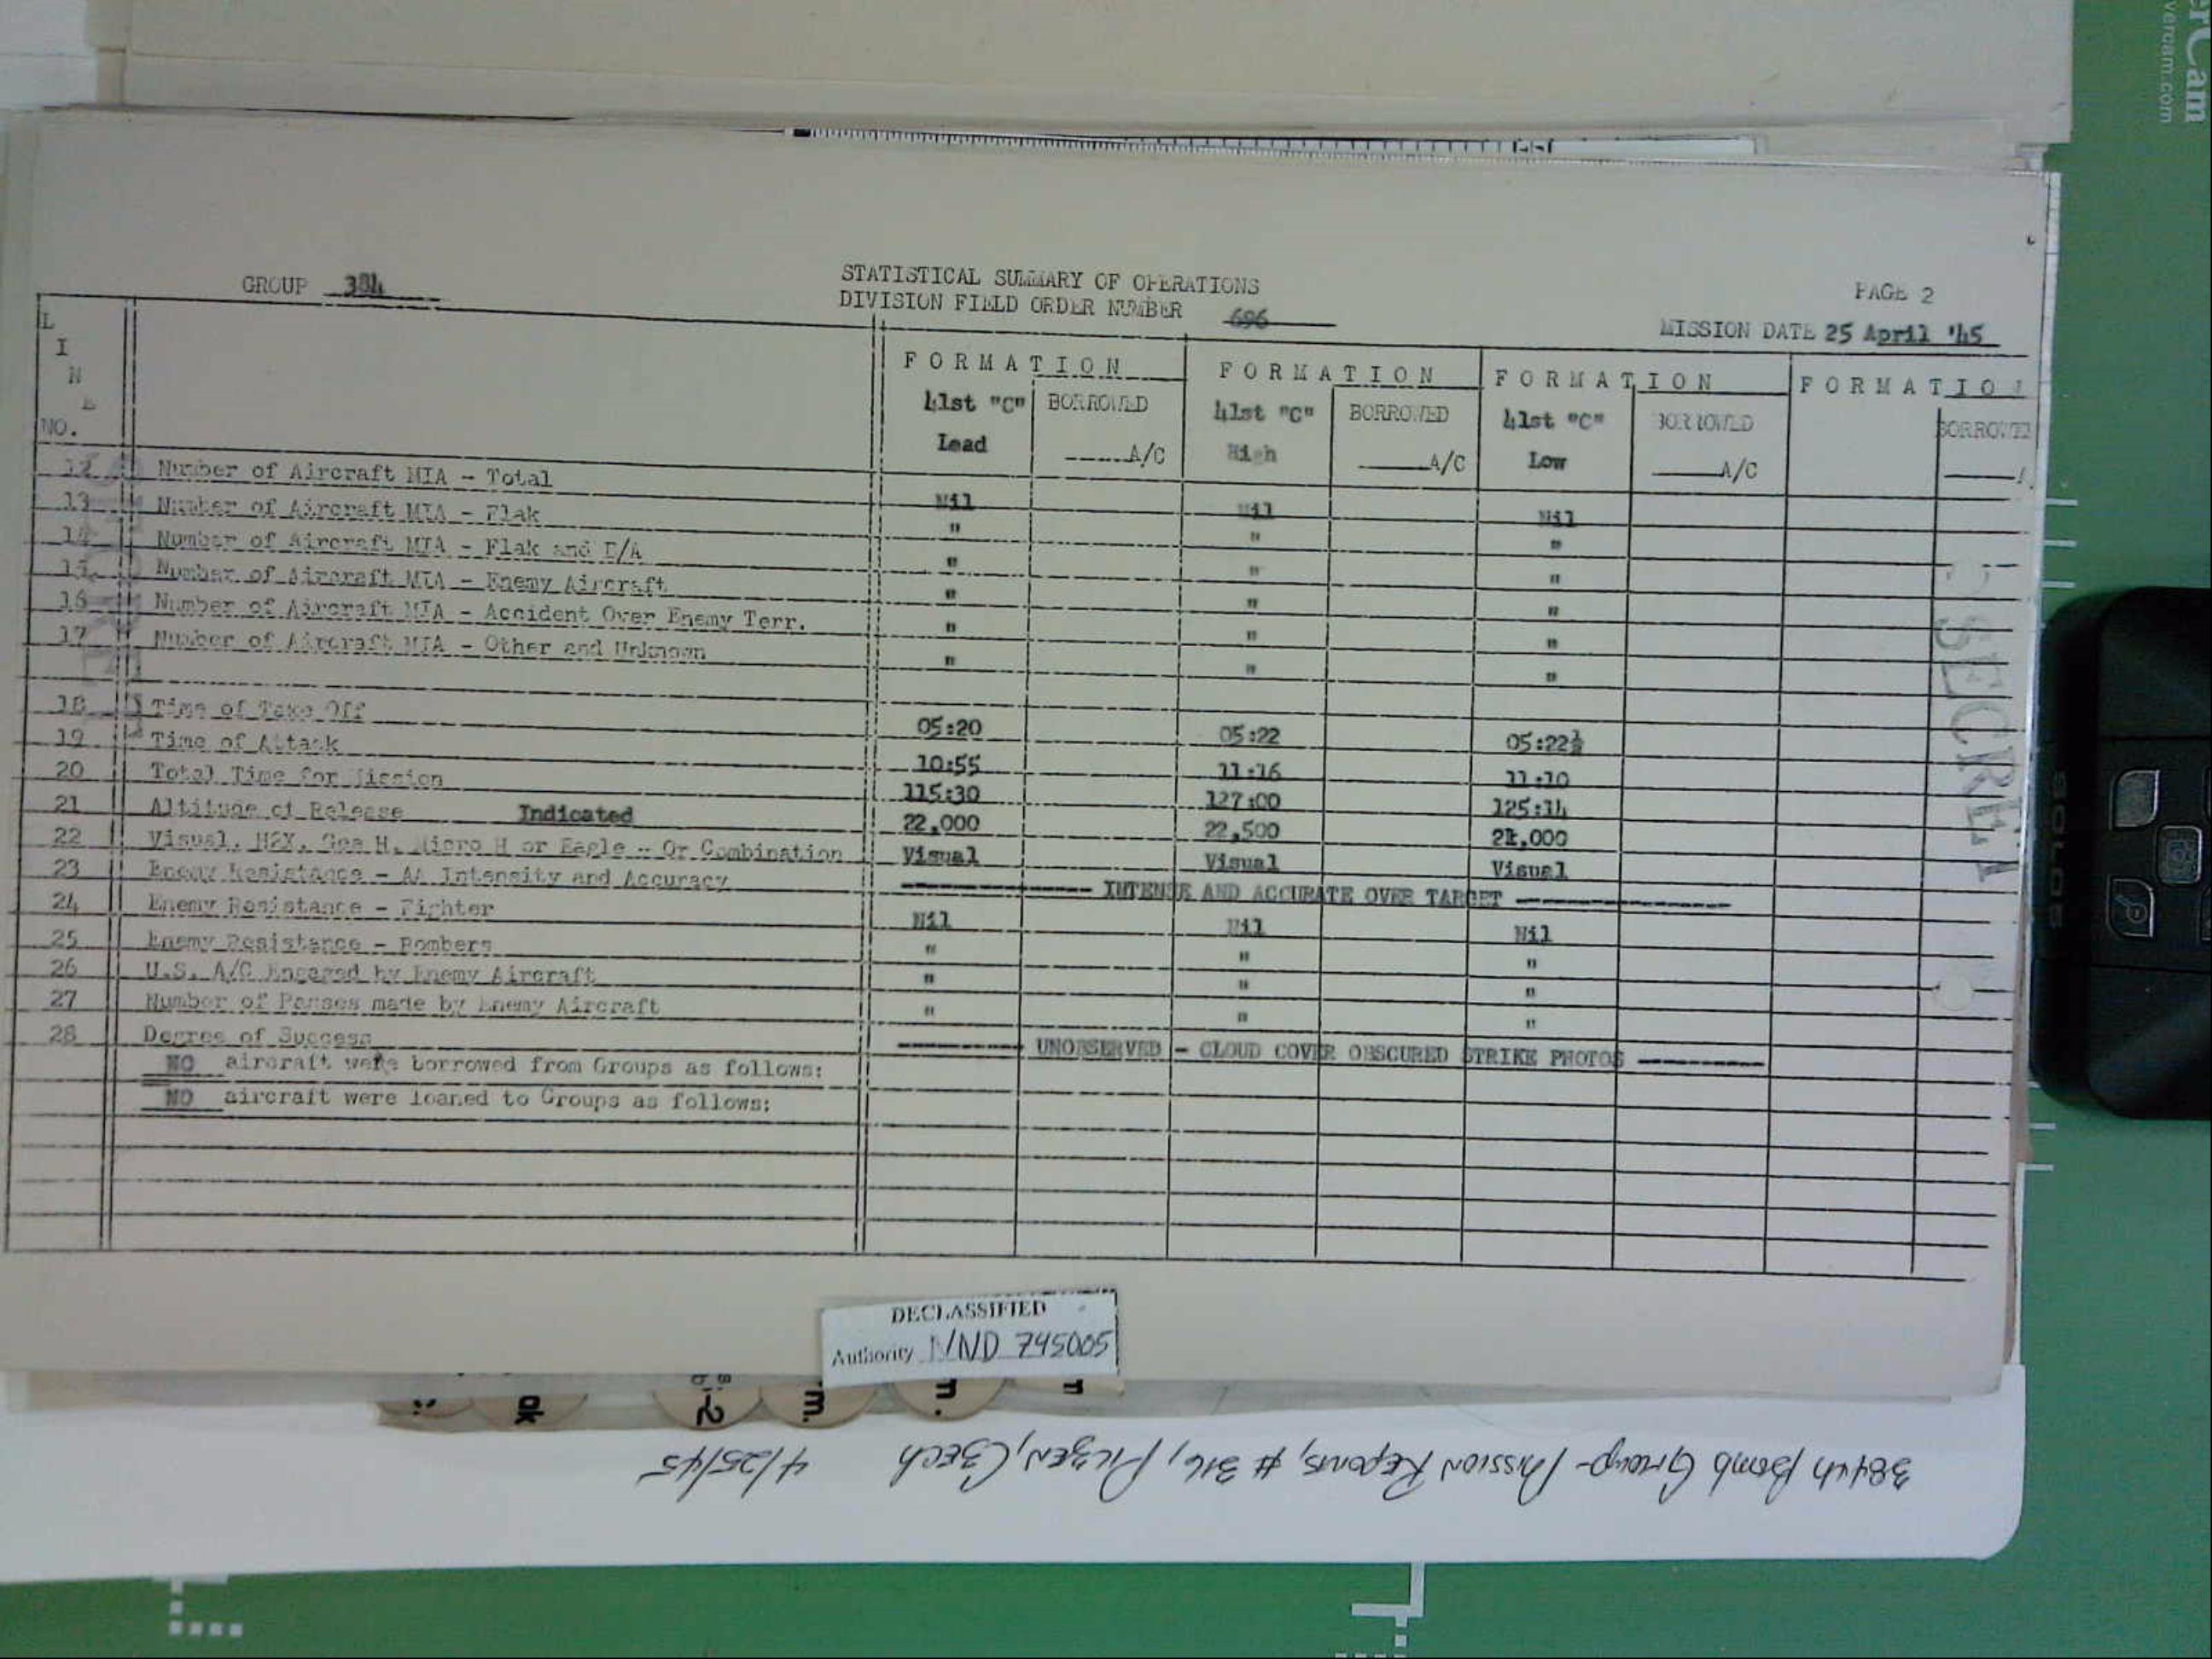 GROUP 384
STATISTICAL SUMMARY OF OPERATIONS
DIVISION FIELD ORDER NUMBER 696
PAGE 2
MISSION DATE 25 April '45
LINE NO.
FORMATION FORMATION FORMATION FORMATION
41st "C" Lead BORROWED ____A/C 41st "C" High BORROWED ____A/C 41st "C" Low BORROWED ____A/C BORROWED
12 Number of Aircraft MIA - Total Nil Nil Nil
13 Number of Aircraft MIA - Flak " " "
14 Number of Aircraft MIA - Flak and E/A " " "
15 Number of Aircraft MIA - Enemy Aircraft " " "
16 Number of Aircraft MIA - Accident Over Enemy Terr. " " "
17 Number of Aircraft MIA - Other and Unknown " " "
18 Time of Take Off 05:20 05:22 05:22½
19 Time of Attack 10:55 11:16 11:10
20 Total Time for Mission 115:30 127:00 125:14
21 Altitude of Release Indicated 22,000 22,500 21,000
22 Visual, H2X, Gee H, Micro H or Eagle - Or Combination Visual Visual Visual
23 Enemy Resistance - AA Intensity and Accuracy INTENSE AND ACCURATE OVER TARGET
24 Enemy Resistance - Fighter Nil Nil Nil
25 Enemy Resistance - Bombers " " "
26 U.S. A/C Engaged by Enemy Aircraft " " "
27 Number of Passes made by Enemy Aircraft " " "
28 Degree of Success UNOBSERVED - CLOUD COVER OBSCURED STRIKE PHOTOS
NO aircraft were borrowed from Groups as follows:
NO aircraft were loaned to Groups as follows:
SECRET
DECLASSIFIED
Authority NND 745005
384th Bomb Group - Mission Reports, #316, Pilzen, Czech 4/25/45